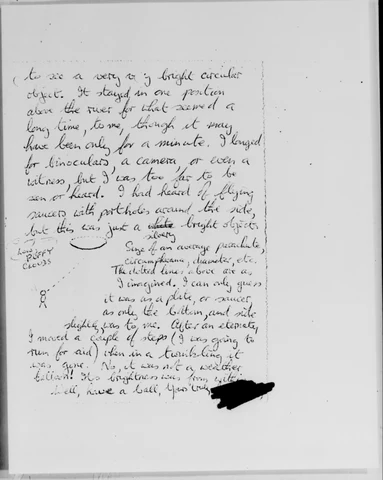 to see a very v y bright circular
object. It stayed in one position
above the river for what seemed a
long time, to me, though it may
have been only for a minute. I longed
for binoculars a camera, or even a
witness, but I was too far to be
seen or heard. I had heard of flying
saucers with portholes around the side,
but this was just a bright object
silvery
Size of an average parachute,
circumference, diameter, etc.
PUFFY
CLOUDS
The dotted lines above are as
I imagined. I can only guess
it was as a plate, or saucer,
as only the bottom, and side
slightly, was to me. After an eternity,
I moved a couple of steps (I was going to
run for aid) when in a twinkling it
was gone. No, it was not a weather
balloon! It's brightness was from within.
Well, have a ball, Yours truly